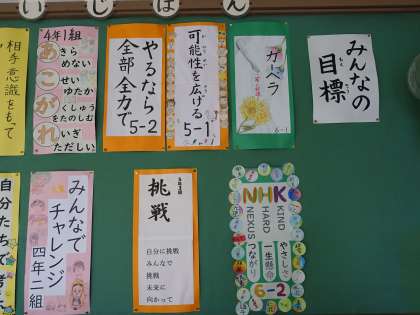 いじばん
みんなの
目標
ガーベラ
6-1
可能性を広げる
5-1
やるなら
全部全力で
5-2
4年1組
あきらめない
こせいゆたか
がくしゅうをたのしむ
れいぎただしい
相手意識をもって
NHK
KIND
HARD
NEXUS
やさしさ
一生懸命
つながり
6-2
挑戦
自分に挑戦
みんなで
挑戦
未来に
向かって
みんなで
チャレンジ
四年二組
自分たちで考え